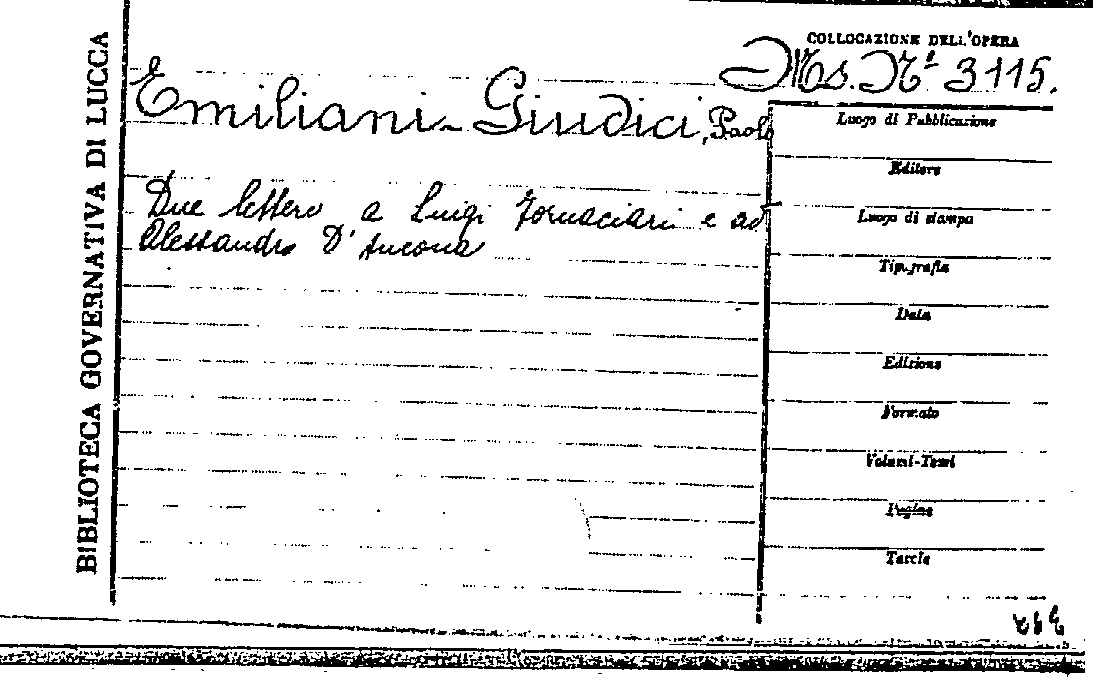 BIBLIOTECA GOVERNATIVA DI LUCCA
COLLOCAZIONE DELL'OPERA
Ms. N° 3115.
Emiliani-Giudici, Paolo
Due lettere a Luigi Fornaciari e ad
Alessandro D'Ancona
Luogo di Pubblicazione
Editore
Luogo di stampa
Tipografia
Data
Edizione
Formato
Volumi-Tomi
Pagine
Tavole